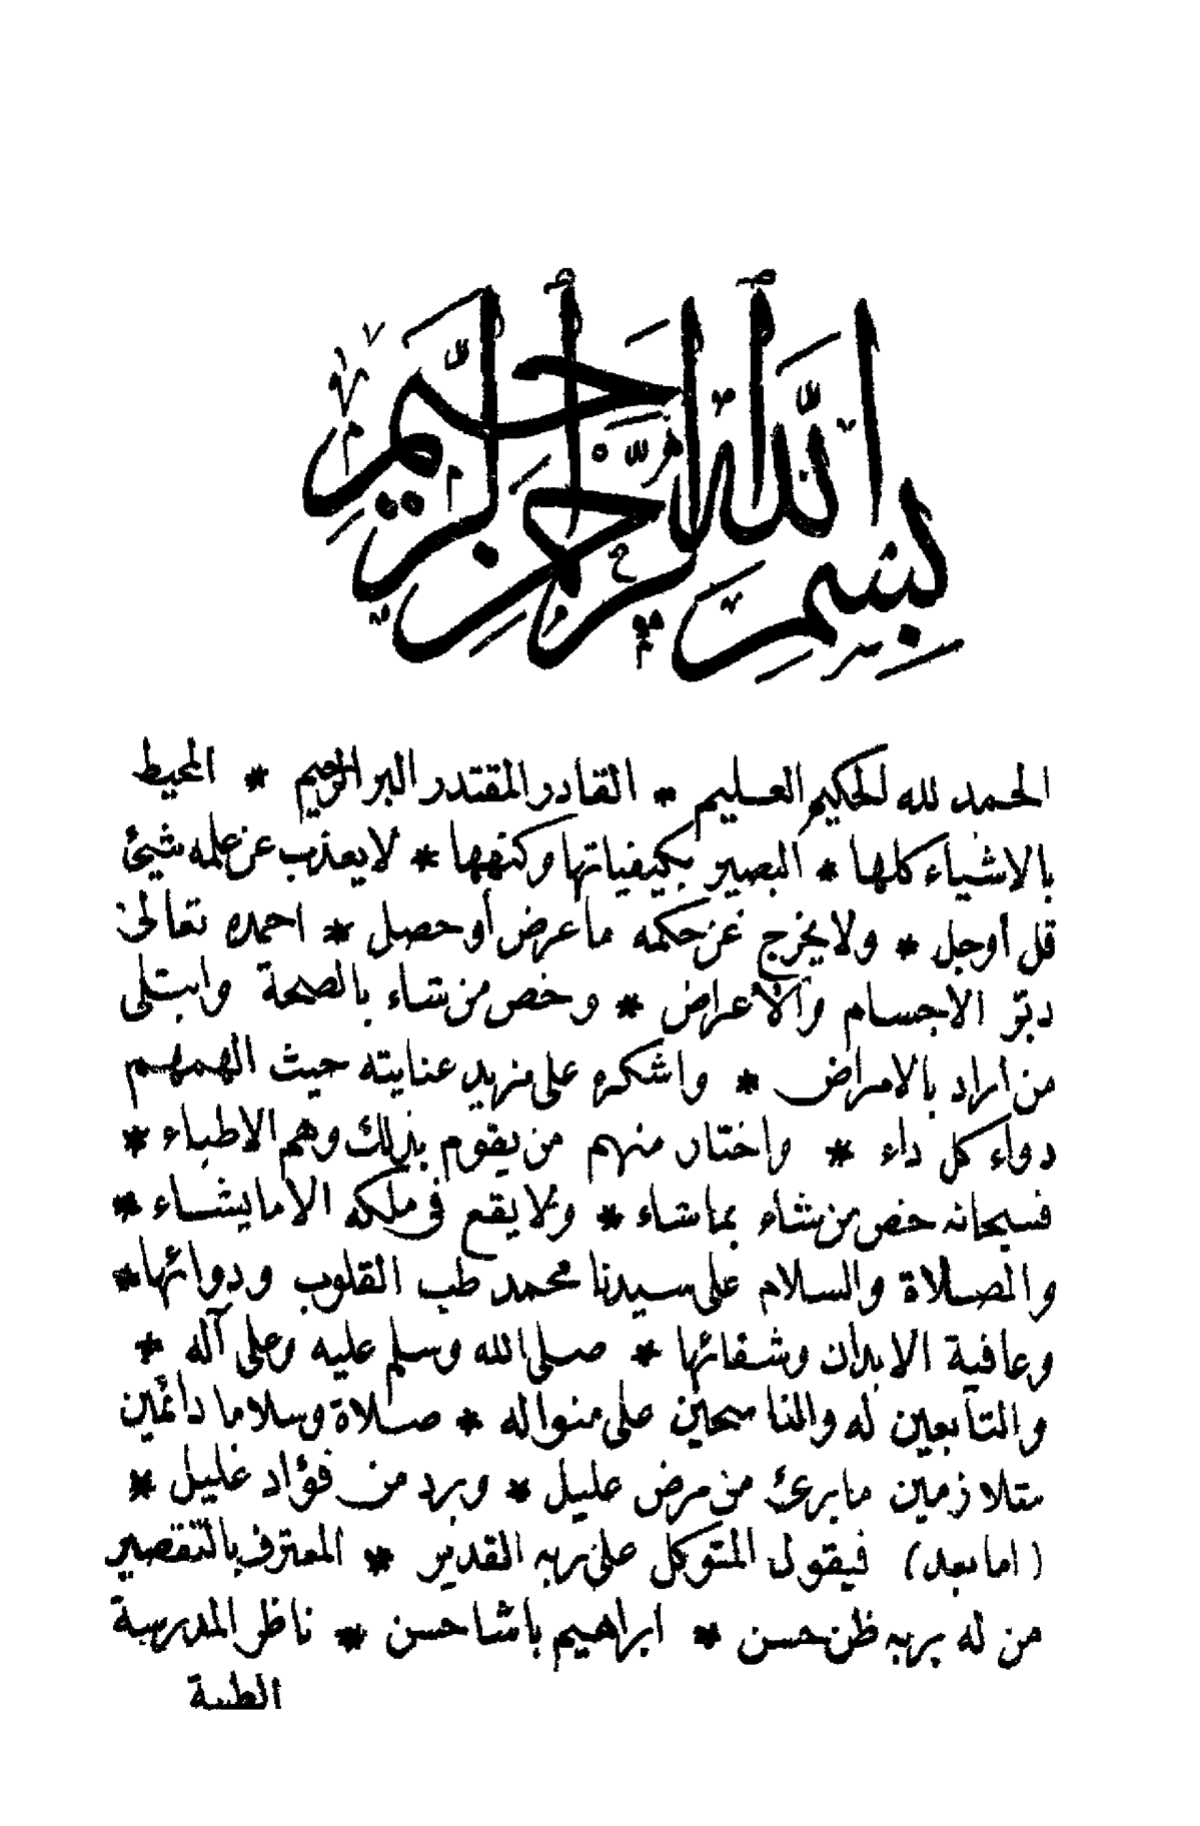 بسم الله الرحمن الرحيم
الحمد لله الحكيم العليم * القادر المقتدر البر الرحيم * المحيط
بالاشياء كلها * البصير بكيفياتها وكنهها * لا يعذب عن علمه شيئ
قل أوجل * ولا يخرج عن حكمه ما عرض أو حصل * احمده تعالى
دبّر الاجسام والأعراض * وخص من شاء بالصحة وابتلى
من أراد بالامراض * واشكره على مزيد عنايته حيث الهمهم
دواء كل داء * واختار منهم من يقوم بذلك وهم الاطباء *
فسبحانه خص من شاء بما شاء * ولا يقع فى ملكه الا ما يشاء *
والصلاة والسلام على سيدنا محمد طب القلوب ودوائها *
وعافية الابدان وشفائها * صلى الله وسلم عليه وعلى آله *
والتابعين له والناسجين على منواله * صلاة وسلاما دائمين
متلازمين ما برئ من مرض عليل * وبرد من فؤاد غليل *
(اما بعد) فيقول المتوكل على ربه القدير * المعترف بالتقصير
من له بربه ظن حسن * ابراهيم باشا حسن * ناظر المدرسة
الطبية